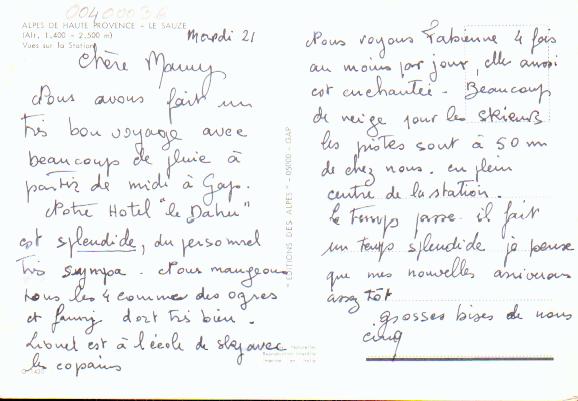 0040003A
ALPES DE HAUTE PROVENCE - LE SAUZE
(Alt. 1.400 - 2.500 m)
Vues sur la Station
Mardi 21
Chère Mamy
Nous avons fait un
très bon voyage avec
beaucoup de pluie à
partir de midi à Gap.
Notre Hotel "le Dahu"
est splendide, du personnel
très sympa. Nous mangeons
tous les 4 comme des ogres
et fanny dort très bien.
Lionel est à l'école de ski avec
les copains
"EDITIONS DES ALPES" - 05000 - GAP
Reproduction interdite
Imprimé en Italie
Nous voyons Fabienne 4 fois
au moins par jour, elle aussi
est enchantée. Beaucoup
de neige pour les skieurs
les pistes sont à 50 m
de chez nous. en plein
centre de la station.
le temps passe. il fait
un temps splendide je pense
que mes nouvelles arriverons
assez tôt
grosses bises de nous
cinq